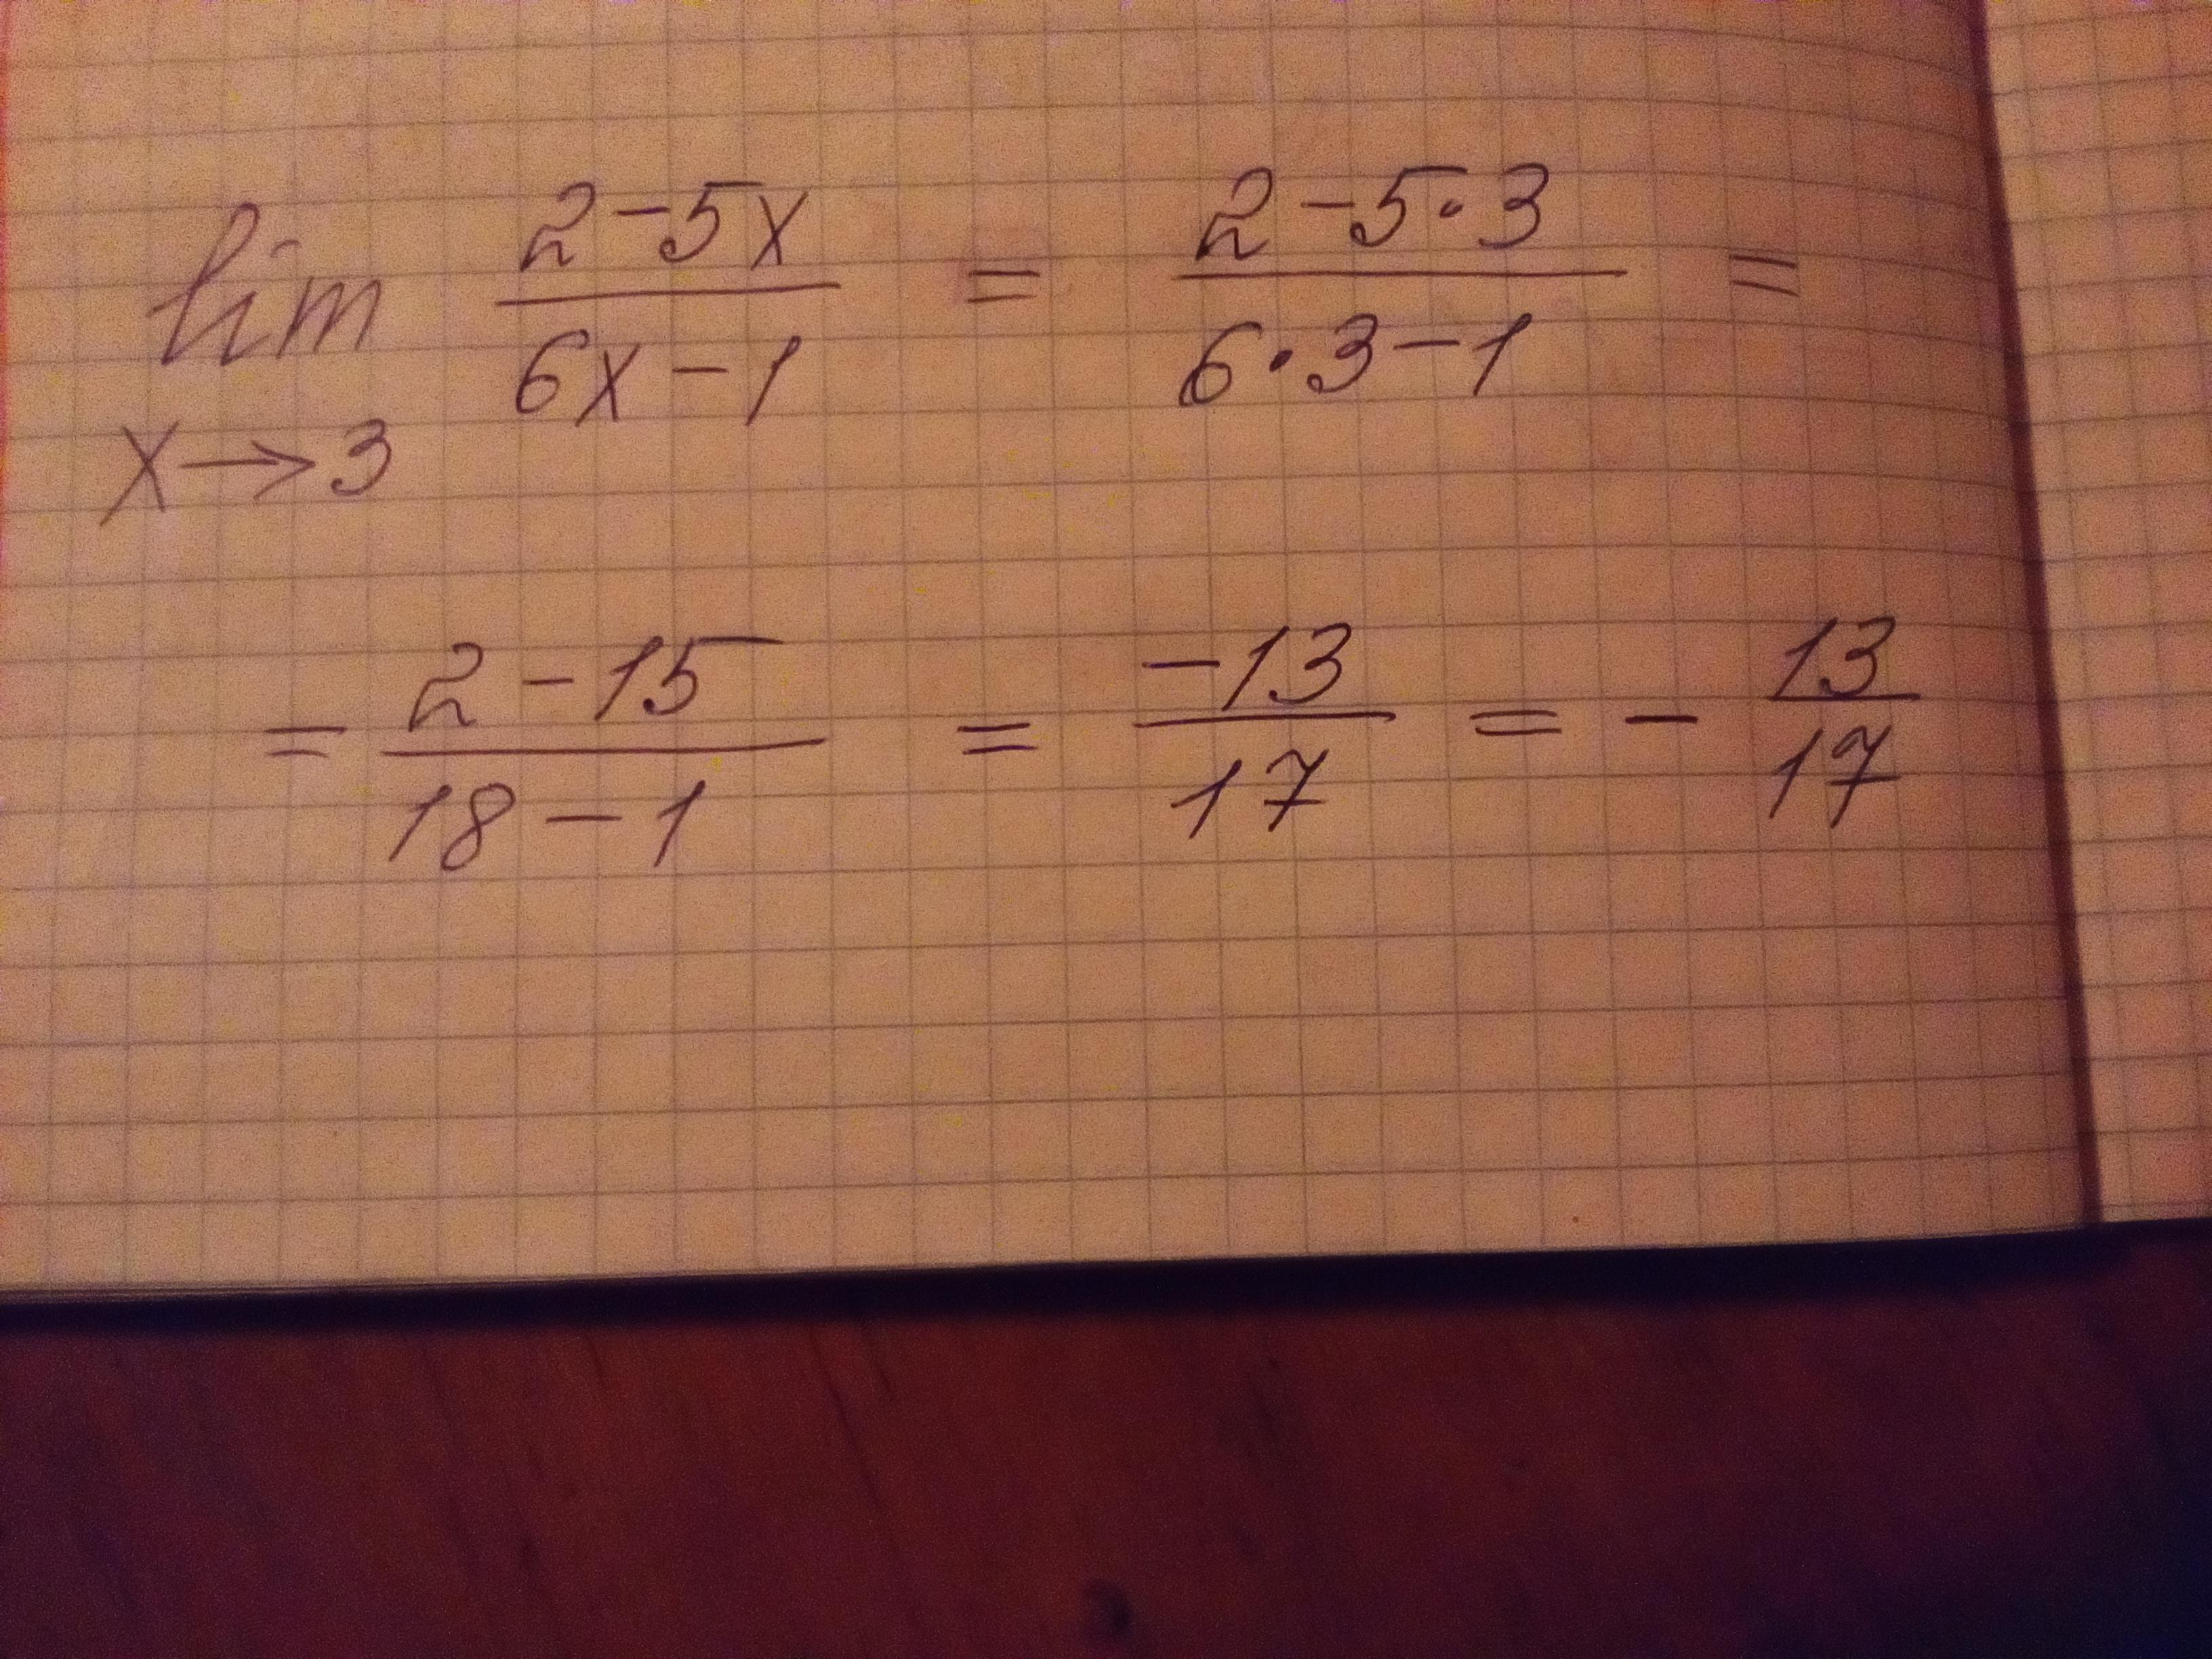 lim 2-5x / 6x-1 = 2-5·3 / 6·3-1 =
x→3
= 2-15 / 18-1 = -13 / 17 = - 13 / 17